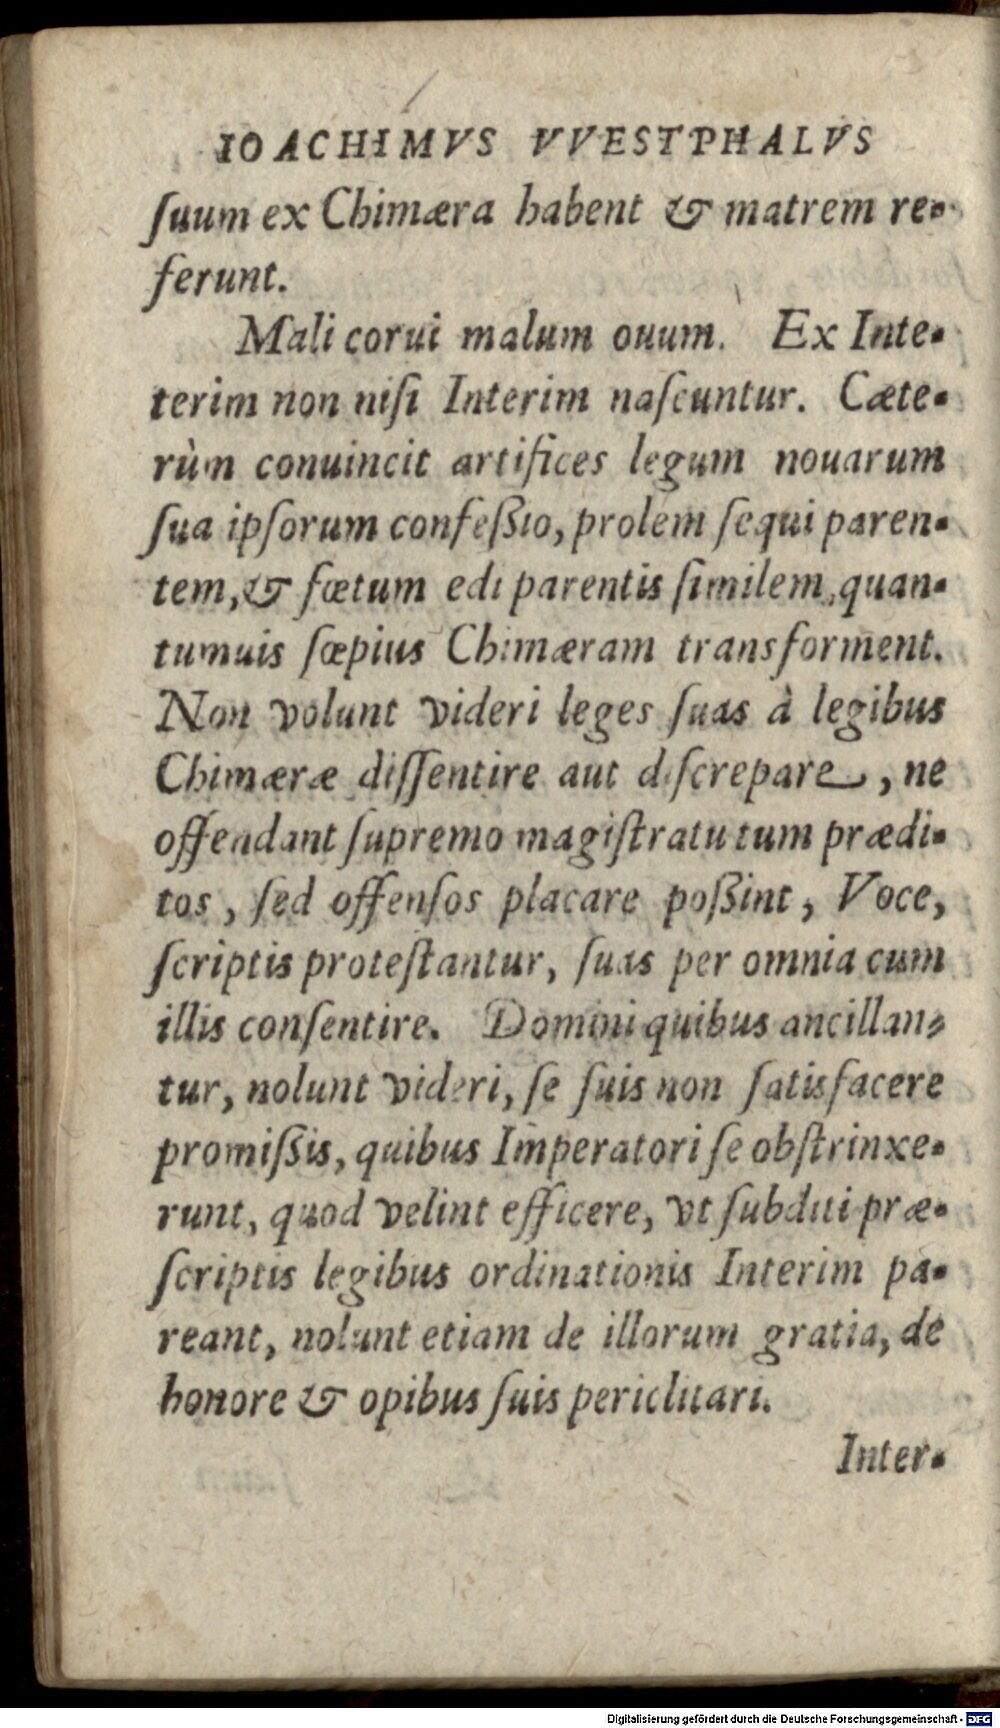 IOACHIMVS VVESTPHALVS
ſuum ex Chimæra habent & matrem re-
ferunt.
Mali corui malum ouum. Ex Inte-
terim non niſi Interim naſcuntur. Cæte-
rùm conuincit artifices legum nouarum
ſua ipſorum confeßio, prolem ſequi paren-
tem, & fœtum edi parentis ſimilem, quan-
tumuis ſæpius Chimæram transforment.
Non volunt videri leges ſuas à legibus
Chimæræ diſſentire aut diſcrepare, ne
offendant ſupremo magiſtratu tum prædi-
tos, ſed offenſos placare poßint, Voce,
ſcriptis proteſtantur, ſuas per omnia cum
illis conſentire. Domini quibus ancillan-
tur, nolunt videri, ſe ſuis non ſatisfacere
promißis, quibus Imperatori ſe obſtrinxe-
runt, quod velint efficere, vt ſubditi præ-
ſcriptis legibus ordinationis Interim pa-
reant, nolunt etiam de illorum gratia, de
honore & opibus ſuis periclitari.
Inter-
Digitalisierung gefördert durch die Deutsche Forschungsgemeinschaft - DFG